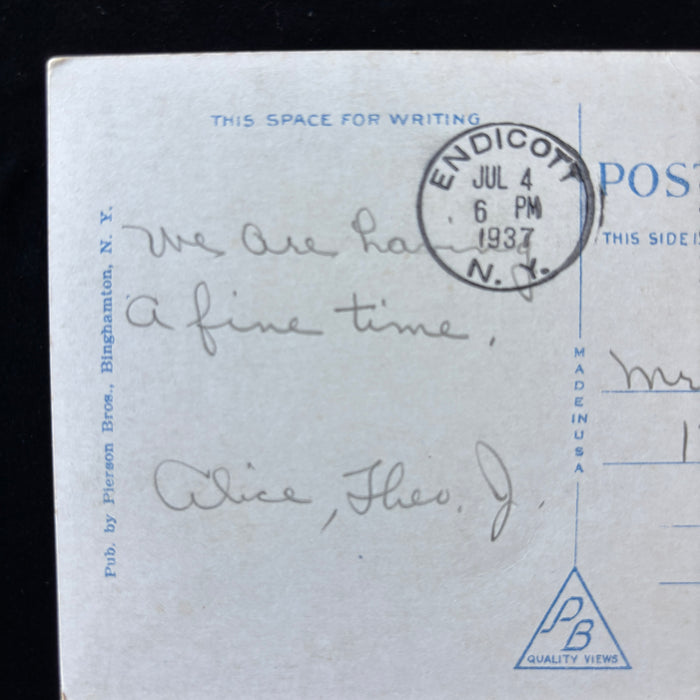 THIS SPACE FOR WRITING
ENDICOTT
JUL 4
6 PM
1937
N. Y.
We are having
A fine time.
Alice, Theo. J.
Pub. by Pierson Bros., Binghamton, N. Y.
MADE IN USA
PB
QUALITY VIEWS
POST
THIS SIDE I
Mr
1